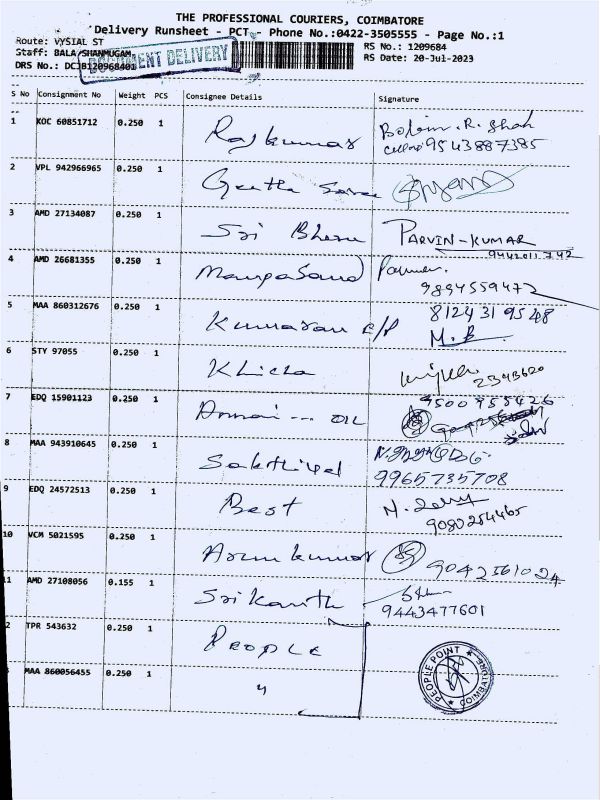 THE PROFESSIONAL COURIERS, COIMBATORE
Delivery Runsheet - PCT - Phone No.:0422-3505555 - Page No.:1
Route: VYSIAL ST
RS No.: 1209684
Staff: BALA/SHANMUGAM
RS Date: 20-Jul-2023
DOCUMENT DELIVERY
DRS No.: DCJB120968401
S No Consignment No Weight PCS Consignee Details Signature
1 KOC 60851712 0.250 1 Rajkumar
9543887385
2 VPL 942966965 0.250 1 Geetha
3 AMD 27134087 0.250 1 Sri PARVIN-KUMAR
9442011742
4 AMD 26681355 0.250 1
9894559472
5 MAA 860312676 0.250 1 Kumaran
M.B.
6 STY 97055 0.250 1 Khicha
2343620
7 EDQ 15901123 0.250 1 Annai --- OIL
8 MAA 943910645 0.250 1 Sakthivel
9965735708
9 EDQ 24572513 0.250 1 Best
10 VCM 5021595 0.250 1 Arunkumar
9042561024
11 AMD 27108056 0.155 1 Srikanth
9443477601
2 TPR 543632 0.250 1 PEOPLE
PEOPLE POINT ★ COIMBATORE ★
MAA 860056455 0.250 1 "